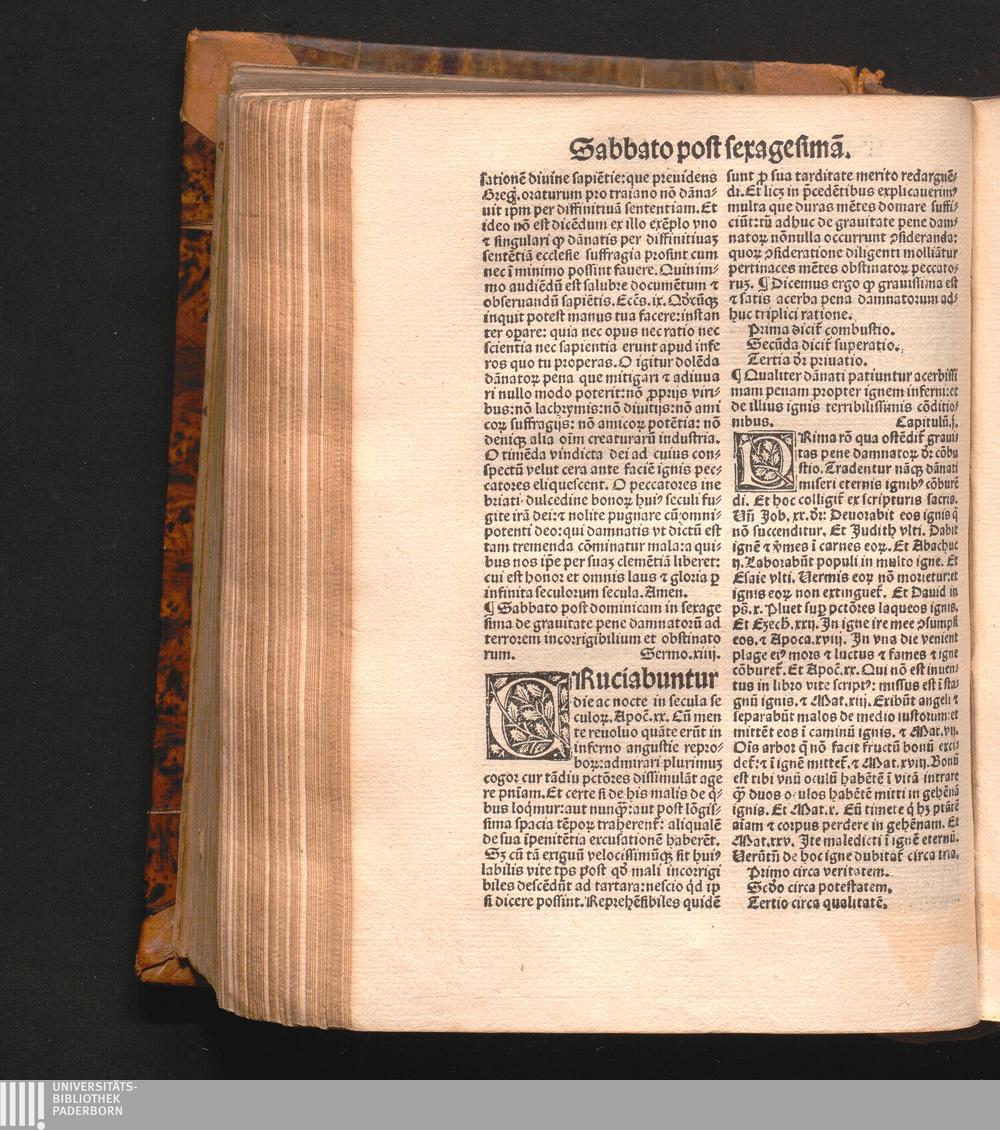 Sabbato post sexagesimā.
sationē diuine sapiētie: que preuidens
Greg. oraturum pro traiano nō dāna-
uit ip̄m per diffinitiuā sententiam. Et
ideo nō est dicēdum ex illo exēplo vno
⁊ singulari ꝙ dānatis per diffinitiuaꝫ
sentētiā ecclesie suffragia prosint cum
nec ī minimo possint fauere. Quinim-
mo audiēdū est salubre documētum ⁊
obseruandū sapiētis. Ecc̄s. ix. Qd̓cūqꝫ
inquit potest manus tua facere: instan
ter oꝑare: quia nec opus nec ratio nec
scientia nec sapientia erunt apud infe
ros quo tu properas. O igitur dolēda
dānatoꝝ pena que mitigari ⁊ adiuua
ri nullo modo poterit: nō ꝓprijs viri-
bus: nō lachrymis: nō diuitijs: nō ami
coꝝ suffragijs: nō amicoꝝ potētia: nō
deniqꝫ alia oīm creaturarū industria.
O timēda vindicta dei ad cuius con-
spectū velut cera ante faciē ignis pec-
catores eliquescent. O peccatores ine
briati dulcedine bonoꝝ huiꝰ seculi fu-
gite irā dei: ⁊ nolite pugnare cū omni-
potenti deo: qui damnatis vt dictū est
tam tremenda cōminatur mala: a qui-
bus nos ip̄e per suaꝫ clemētiā liberet:
cui est honor et omnis laus ⁊ gloria ꝑ
infinita seculorum secula. Amen.
¶ Sabbato post dominicam in sexage
sima de grauitate pene damnatorū ad
terrorem incorrigibilium et obstinato
rum. Sermo. xiiij.
CRuciabuntur
die ac nocte in secula se
culoꝝ. Apoc̄. xx. Cū men
te reuoluo quāte erūt in
inferno angustie repro-
boꝝ: admirari plurimuꝫ
cogor cur tādiu pctōres dissimulāt age
re pniam. Et certe si de his malis de q̄-
bus loq̇mur: aut nunqꝫ̄: aut post lōgis-
sima spacia tēpoꝝ traherent̄: aliqualē
de sua īpenitētia excusationē haberēt.
Sꝫ cū tā exiguū velocissimūqꝫ sit huiꝰ
labilis vite tp̄s post qd̓ mali incorrigi
biles descēdūt ad tartara: nescio q̇d ip̄
si dicere possint. Reprehēsibiles quidē
sunt ꝓ sua tarditate merito redarguē-
di. Et licꝫ in p̄cedētibus explicauerimꝰ
multa que duras mētes domare suffi-
ciūt: tū adhuc de grauitate pene dam-
natoꝝ nōnulla occurrunt ꝯsideranda:
quoꝝ ꝯsideratione diligenti molliātur
pertinaces mētes obstinatoꝝ peccato-
ruꝫ. ¶ Dicemus ergo ꝙ grauissima est
⁊ satis acerba pena damnatorum ad-
huc triplici ratione.
Prima dicit̄ combustio.
Secūda dicit̄ superatio.
Tertia dr̄ priuatio.
¶ Qualiter dānati patiuntur acerbissi
mam penam propter ignem inferni: et
de illius ignis terribilissimis cōditio-
nibus. Capitulū. j.
PRima rō qua ostēdit̄ graui
tas pene damnatoꝝ dr̄ cōbu
stio. Tradentur nāqꝫ dānati
miseri eternis ignibꝰ cōburē
di. Et hoc colligit̄ ex scripturis sacris.
Vn̄ Job. xx. dr̄: Deuorabit eos ignis q̇
nō succenditur. Et Judith vlti. Dabit
ignē ⁊ v̓mes ī carnes eoꝝ. Et Abachuc
ij. Laborabūt populi in multo igne. Et
Esaie vlti. Uermis eoꝝ nō morietur: et
ignis eoꝝ non extinguet̄. Et Dauid in
ps̄. x. Pluet suꝑ pctōres laqueos ignis.
Et Ezech. xxij. In igne ire mee ꝯsumpsi
eos. ⁊ Apoca. xviij. In vna die venient
plage eiꝰ mors ⁊ luctus ⁊ fames ⁊ igne
cōburet̄. Et Apoc̄. xx. Qui nō est inuen-
tus in libro vite scriptꝰ: missus est ī sta-
gnū ignis. ⁊ Mat. xiij. Exibūt angeli ⁊
separabūt malos de medio iustorum: et
mittēt eos ī caminū ignis. ⁊ Mat. vij.
Oīs arbor q̄ nō facit fructū bonū exci-
det̄: ⁊ ī ignē mittet̄. ⁊ Mat. xviij. Bonū
est tibi vnū oculū habētē ī vitā intrare
qꝫ̄ duos oculos habētē mitti in gehēnā
ignis. Et Mat. x. Eū timete q̇ hꝫ ptātē
aīam ⁊ corpus perdere in gehēnam. Et
Mat. xxv. Ite maledicti ī ignē eternū.
Uerūtn̄ de hoc igne dubitat̄ circa tria.
Primo circa veritatem.
Scd̓o circa potestatem.
Tertio circa qualitatē.
UNIVERSITÄTS-
BIBLIOTHEK
PADERBORN